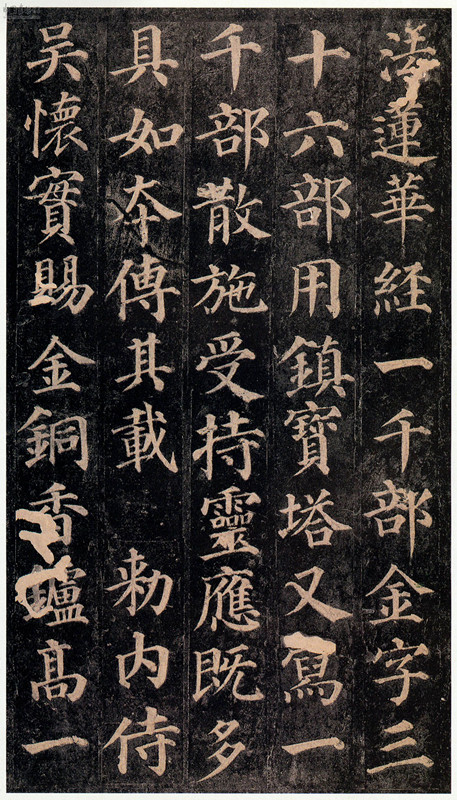 法蓮華經一千部金字三
十六部用鎮寶塔又寫一
千部散施受持靈應既多
具如本傳其載　敕内侍
吴懷實賜金銅香鑪高一